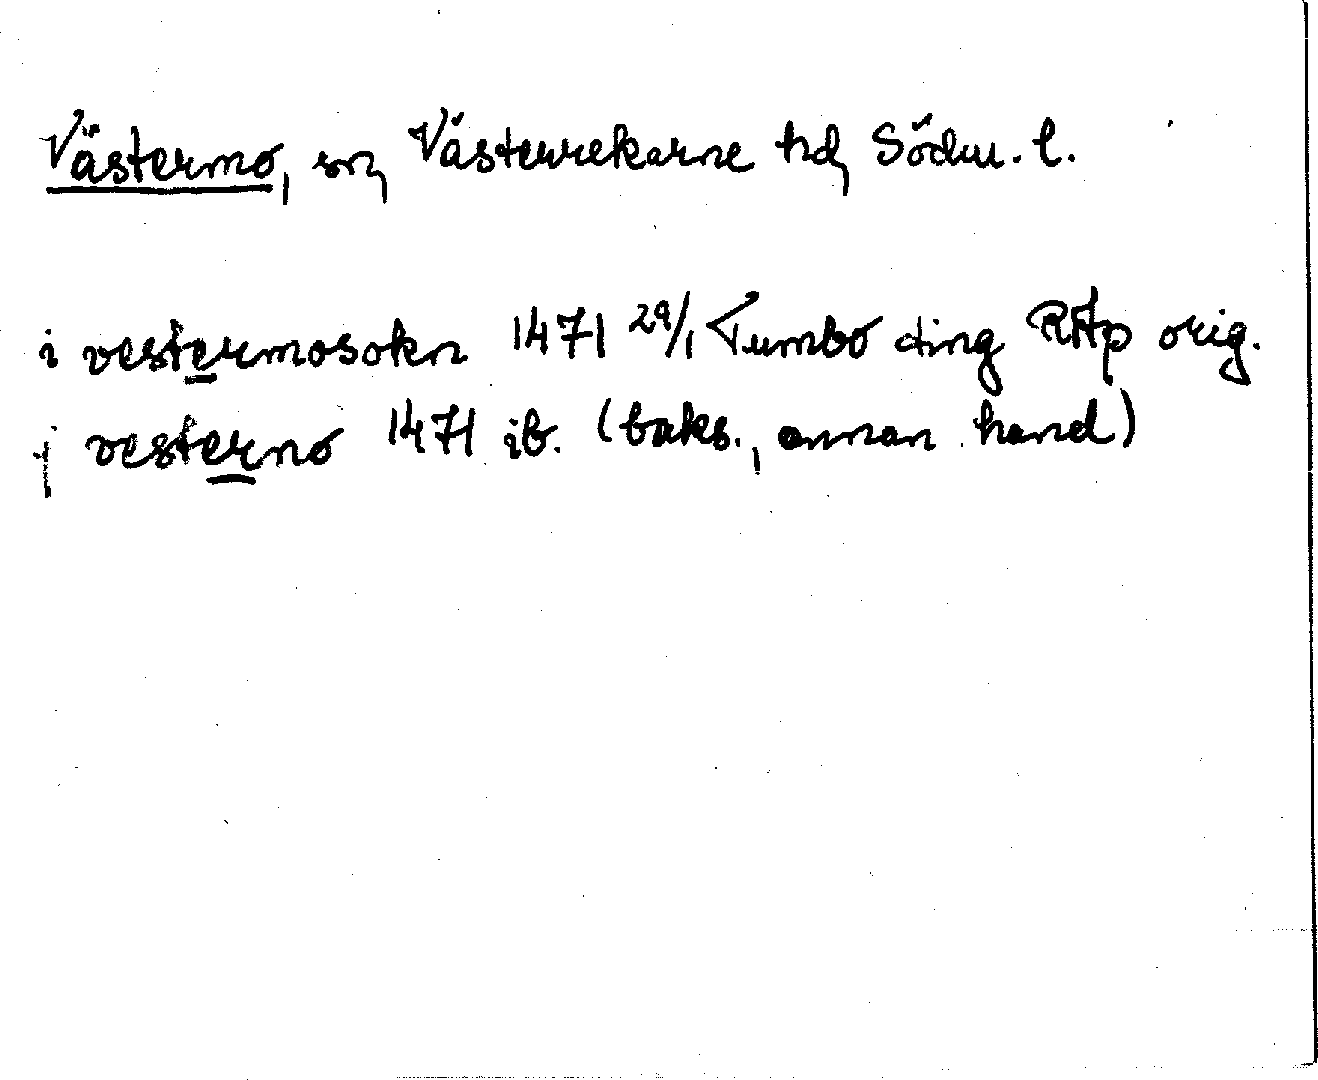 Västermo, sn, Västerrekarne hd, Söderm. l.
i vestermosokn 1471 29/1 Tumbo ting RAp orig.
j vestermo 1471 ib. (baks., annan hand)